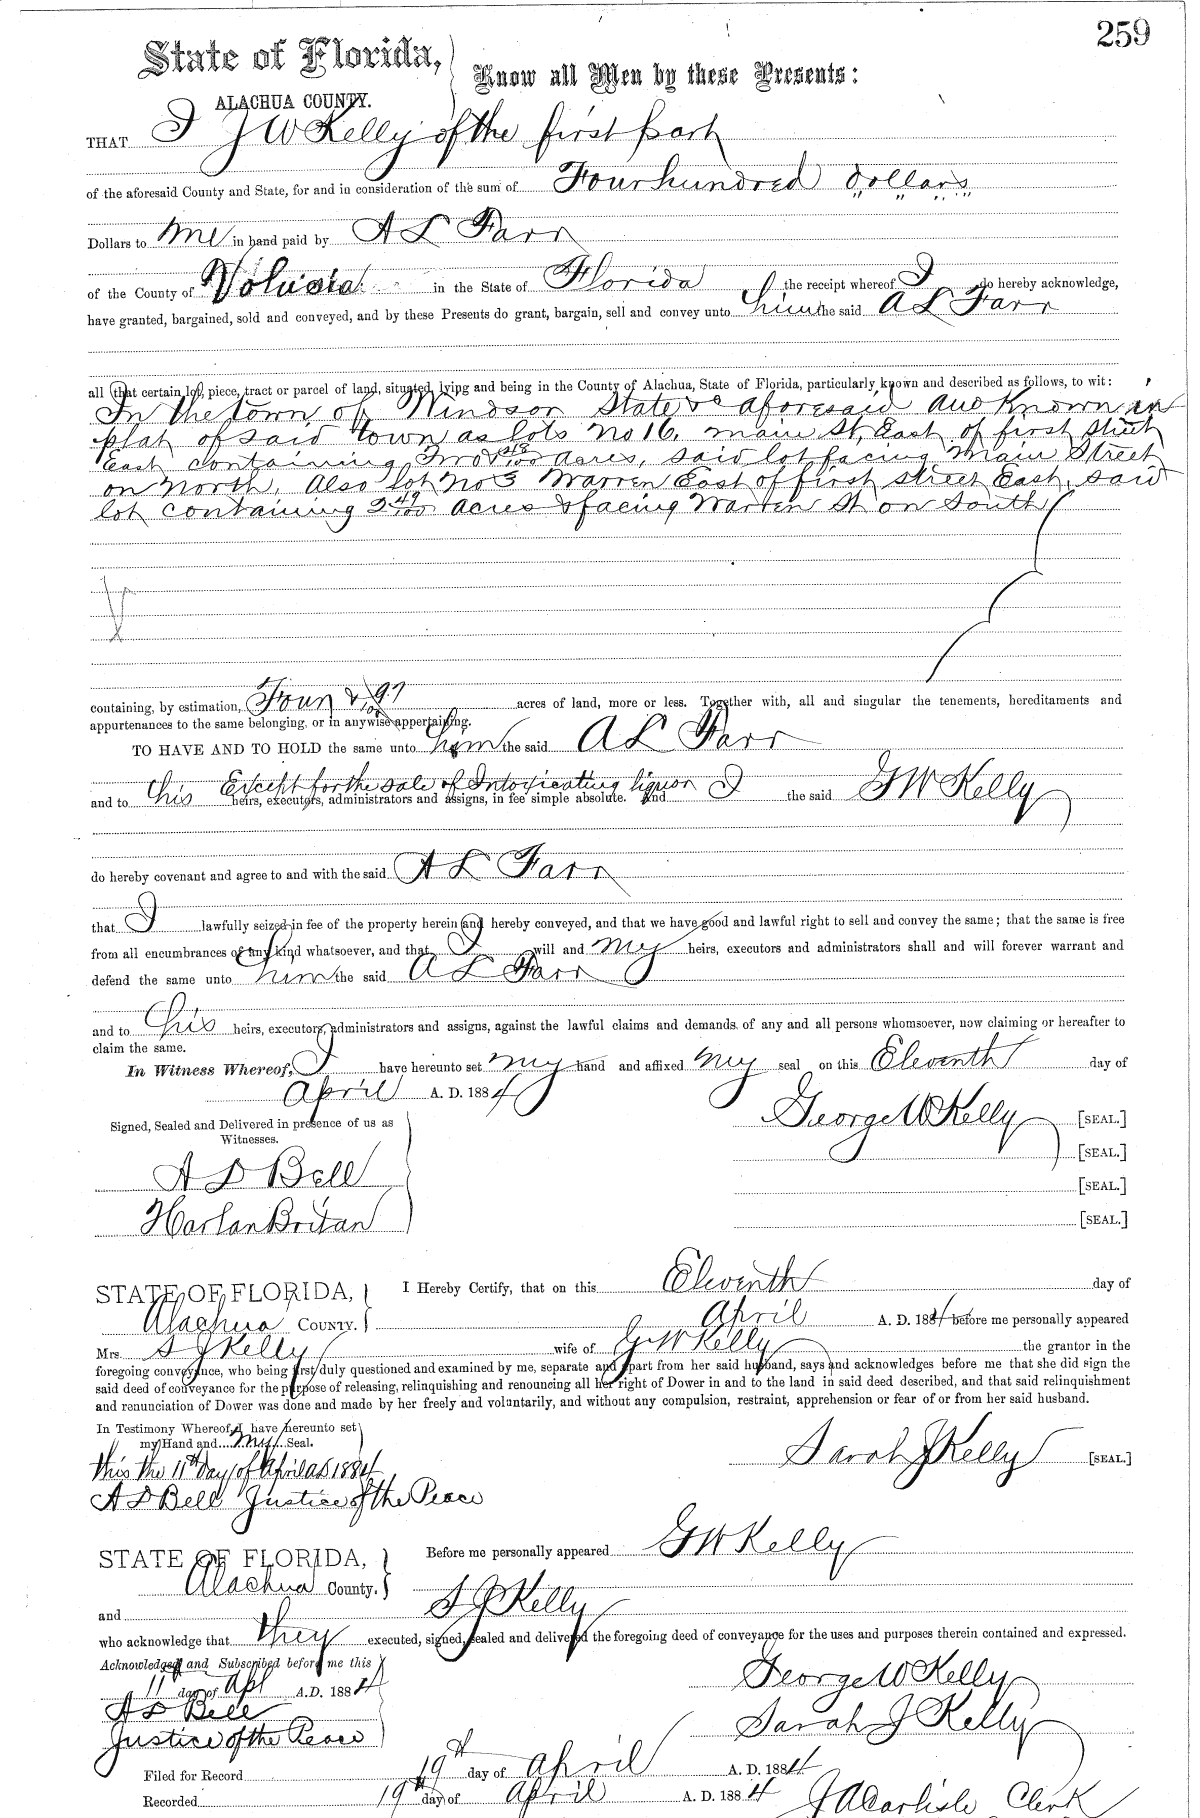 259
State of Florida,
ALACHUA COUNTY.
Know all Men by these Presents:
THAT I J W Kelly of the first part
of the aforesaid County and State, for and in consideration of the sum of Four hundred dollars
Dollars to me in hand paid by A L Farr
of the County of Volusia in the State of Florida the receipt whereof I do hereby acknowledge,
have granted, bargained, sold and conveyed, and by these Presents do grant, bargain, sell and convey unto him the said A L Farr
all that certain lot, piece, tract or parcel of land, situated, lying and being in the County of Alachua, State of Florida, particularly known and described as follows, to wit:
In the town of Windsor State &c aforesaid and known in
plat of said town as lots No 16. main St. East of first Street
East containing Two 48/100 acres, said lot facing Main Street
on North. Also lot No 3 Warren East of first street East, said
lot containing 2 49/100 acres & facing Warren St on South
containing, by estimation, Four & 97/100 acres of land, more or less. Together with, all and singular the tenements, hereditaments and
appurtenances to the same belonging, or in anywise appertaining.
TO HAVE AND TO HOLD the same unto him the said A L Farr
Except for the sale of Intoxicating liquor
and to his heirs, executors, administrators and assigns, in fee simple absolute. And I the said G W Kelly
do hereby covenant and agree to and with the said A L Farr
that I lawfully seized in fee of the property herein and hereby conveyed, and that we have good and lawful right to sell and convey the same; that the same is free
from all encumbrances of any kind whatsoever, and that I will and my heirs, executors and administrators shall and will forever warrant and
defend the same unto him the said A L Farr
and to his heirs, executors, administrators and assigns, against the lawful claims and demands of any and all persons whomsoever, now claiming or hereafter to
claim the same.
In Witness Whereof, I have hereunto set my hand and affixed my seal on this Eleventh day of
April A. D. 1884
Signed, Sealed and Delivered in presence of us as
Witnesses.
George W Kelly [SEAL.]
[SEAL.]
A D Bell
[SEAL.]
Harlan Britan
[SEAL.]
STATE OF FLORIDA,
Alachua COUNTY.
I Hereby Certify, that on this Eleventh day of
April A. D. 1884 before me personally appeared
Mrs. S J Kelly wife of G W Kelly the grantor in the
foregoing conveyance, who being first duly questioned and examined by me, separate and apart from her said husband, says and acknowledges before me that she did sign the
said deed of conveyance for the purpose of releasing, relinquishing and renouncing all her right of Dower in and to the land in said deed described, and that said relinquishment
and renunciation of Dower was done and made by her freely and voluntarily, and without any compulsion, restraint, apprehension or fear of or from her said husband.
In Testimony Whereof, I have hereunto set
my Hand and my Seal.
Sarah J Kelly [SEAL.]
this the 11th day of April AD 1884
A D Bell Justice of the Peace
STATE OF FLORIDA,
Alachua County.
Before me personally appeared G W Kelly
and S J Kelly
who acknowledge that they executed, signed, sealed and delivered the foregoing deed of conveyance for the uses and purposes therein contained and expressed.
Acknowledged and Subscribed before me this
11th day of Apl A.D. 1884
George W Kelly
A D Bell
Sarah J Kelly
Justice of the Peace
Filed for Record 19th day of April A. D. 1884
Recorded 19th day of April A. D. 1884
J A Carlisle Clerk